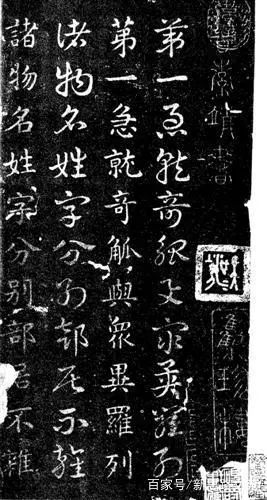 第一急就奇觚與眾異羅列
第一急就奇觚與眾異羅列
諸物名姓字分別部居不雜
諸物名姓字分别部居不雜
百家号/新